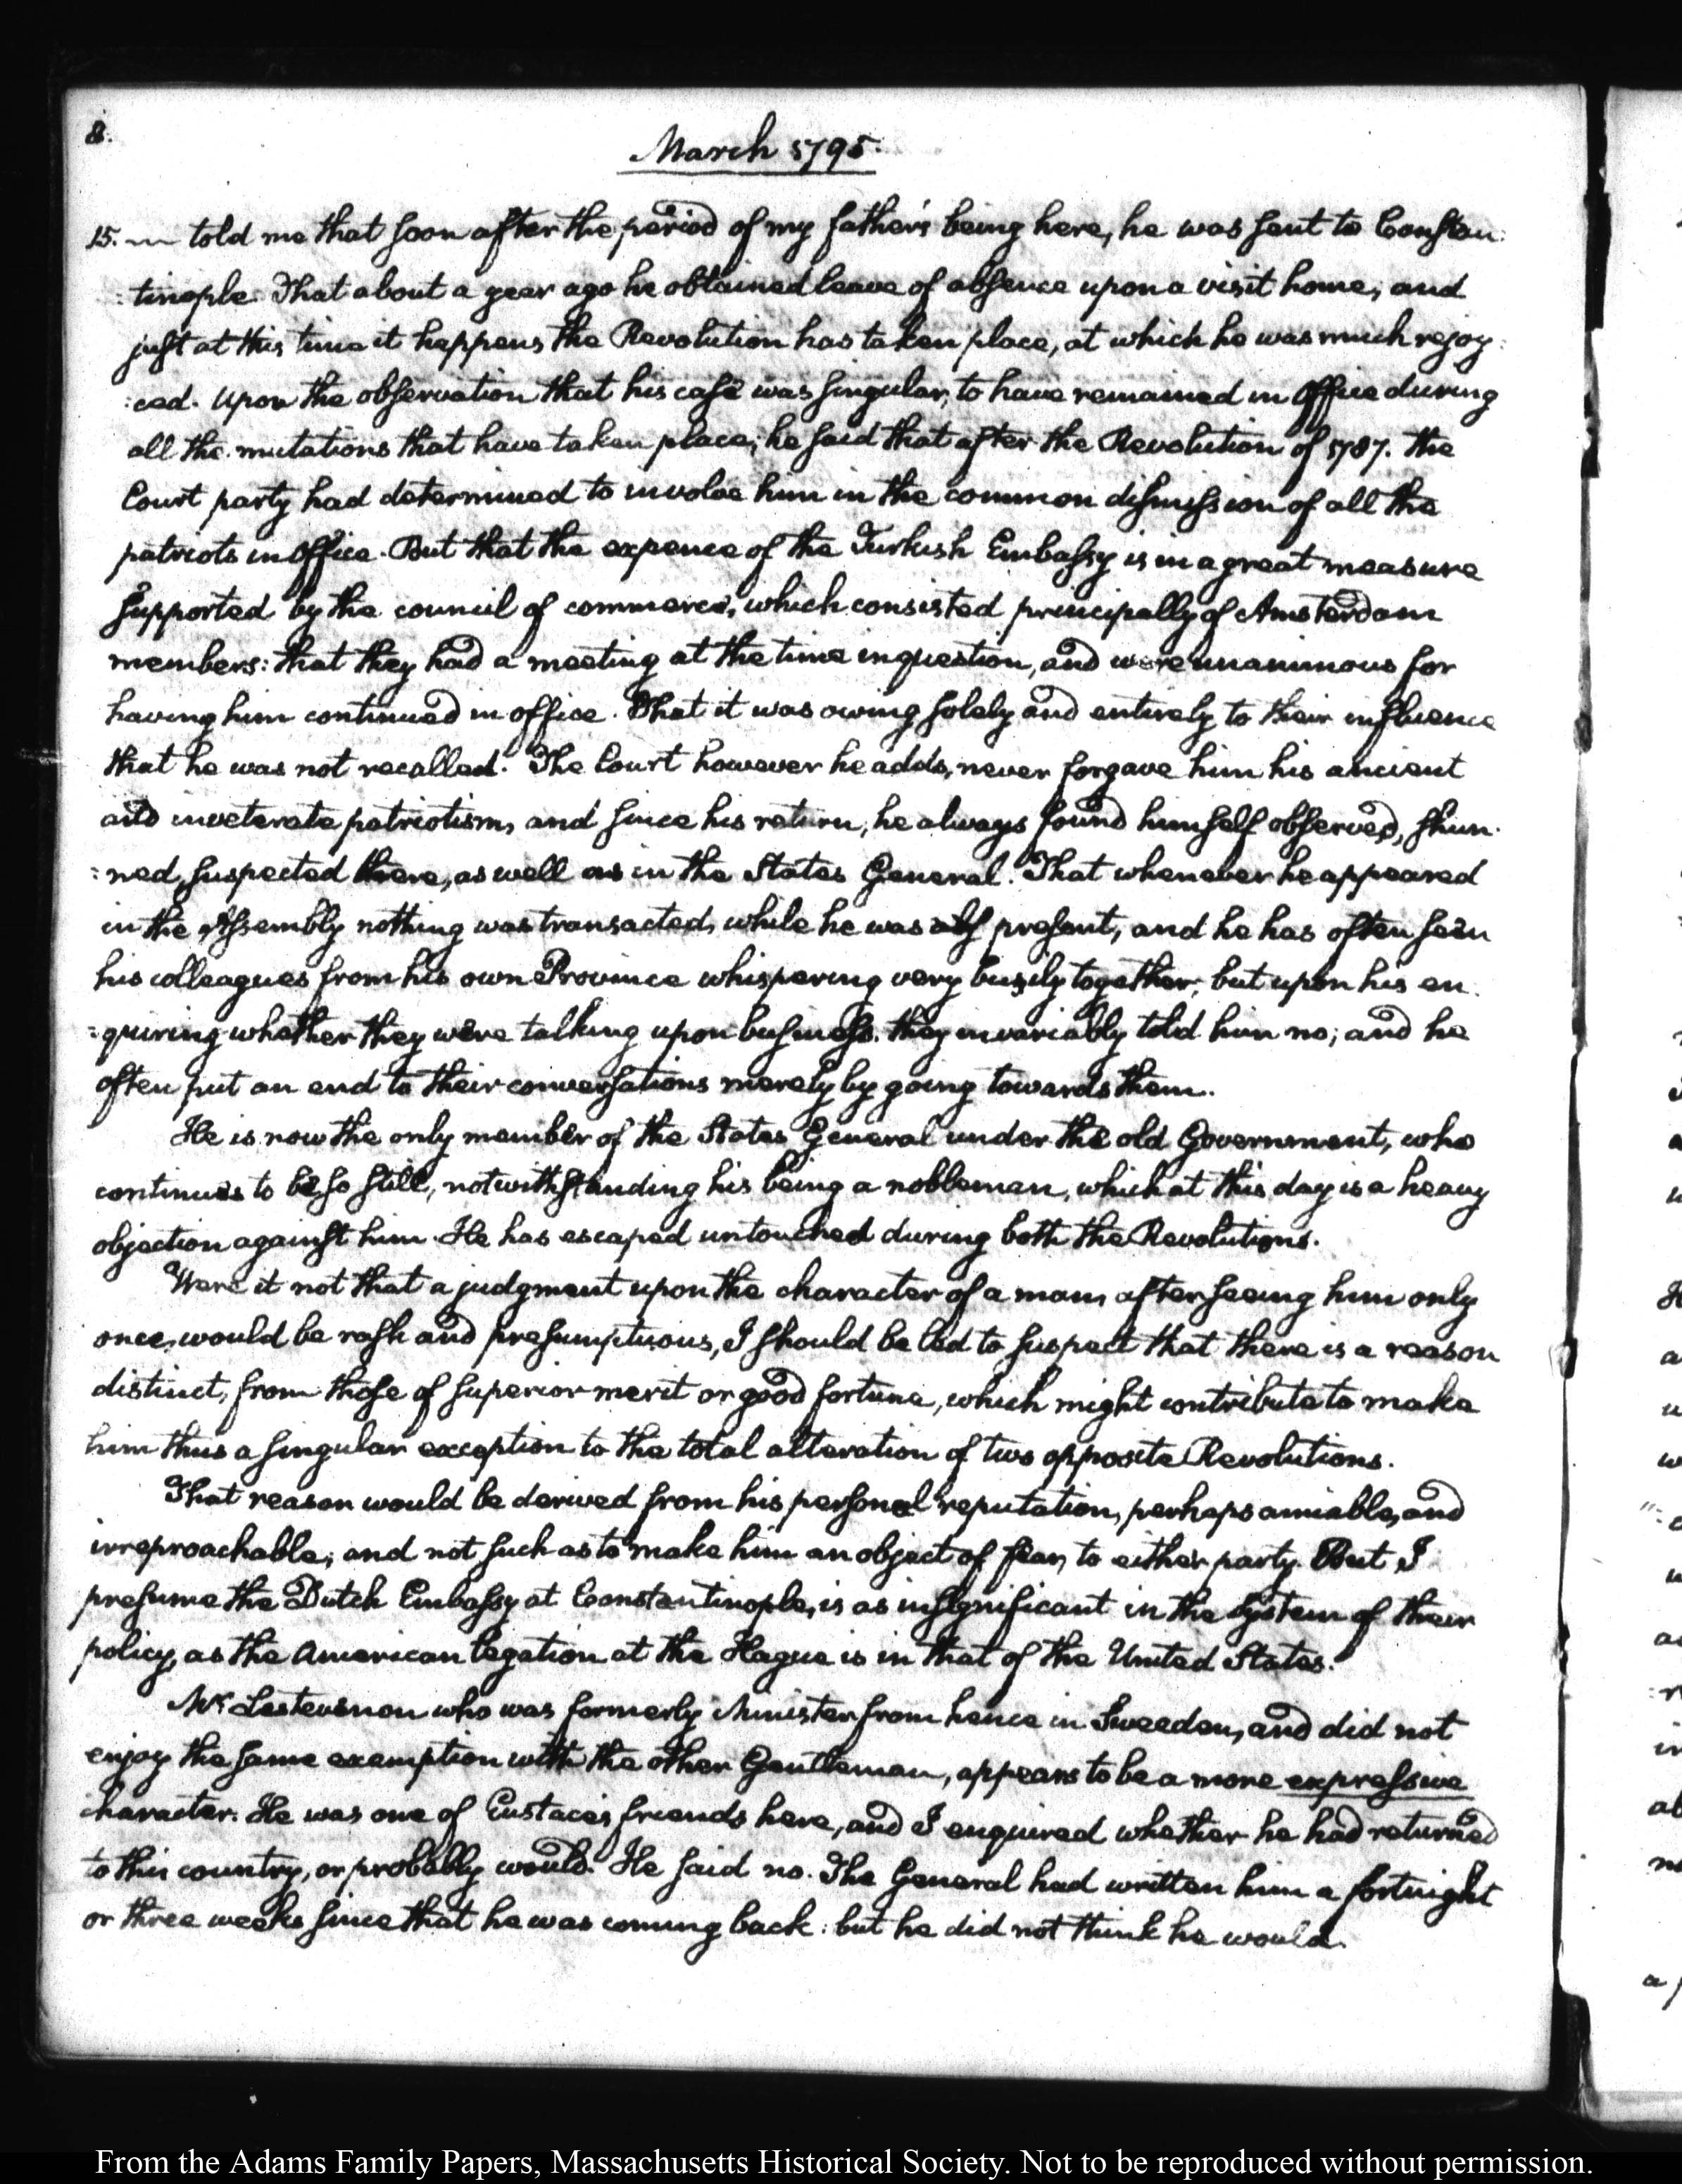 8.
March 1795.
15. told me that soon after the period of my father's being here, he was sent to Constan:
:tinople. That about a year ago he obtained leave of absence upon a visit home; and
just at this time it happens the Revolution has taken place, at which he was much rejoy:
:ced. Upon the observation that his case was singular, to have remained in Office during
all the mutations that have taken place; he said that after the Revolution of 1787. the
Court party had determined to involve him in the common dismission of all the
patriots in Office. But that the expence of the Turkish Embassy is in a great measure
supported by the council of commerce, which consisted principally of Amsterdam
members: that they had a meeting at the time in question, and were unanimous for
having him continued in office. That it was owing solely and entirely to their influence
that he was not recalled. The Court however he adds, never forgave him his ancient
and inveterate patriotism, and since his return, he always found himself observed, shun:
:ned, suspected there, as well as in the States General. That whenever he appeared
in the Assembly nothing was transacted, while he was present, and he has often seen
his colleagues from his own Province whispering very busily together, but upon his en:
:quiring whether they were talking upon business. they invariably told him no; and he
often put an end to their conversations merely by going towards them.
He is now the only member of the States General under the old Government, who
continues to be so still, notwithstanding his being a nobleman, which at this day is a heavy
objection against him. He has escaped untouched during both the Revolutions.
Were it not that a judgment upon the character of a man, after seeing him only
once, would be rash and presumptuous, I should be led to suspect that there is a reason
distinct, from those of superior merit or good fortune, which might contribute to make
him thus a singular exception to the total alteration of two opposite Revolutions.
That reason would be derived from his personal reputation, perhaps amiable, and
irreproachable; and not such as to make him an object of fear, to either party. But I
presume the Dutch Embassy at Constantinople, is as insignificant in the System of their
policy, as the American legation at the Hague is in that of the United States.
Mr. Lestevenon who was formerly Minister from hence in Sweeden, and did not
enjoy the same exemption with the other Gentleman, appears to be a more expressive
character. He was one of Eustace's friends here, and I enquired whether he had returned
to this country, or probably would. He said no. The General had written him a fortnight
or three weeks since that he was coming back: but he did not think he would.
From the Adams Family Papers, Massachusetts Historical Society. Not to be reproduced without permission.